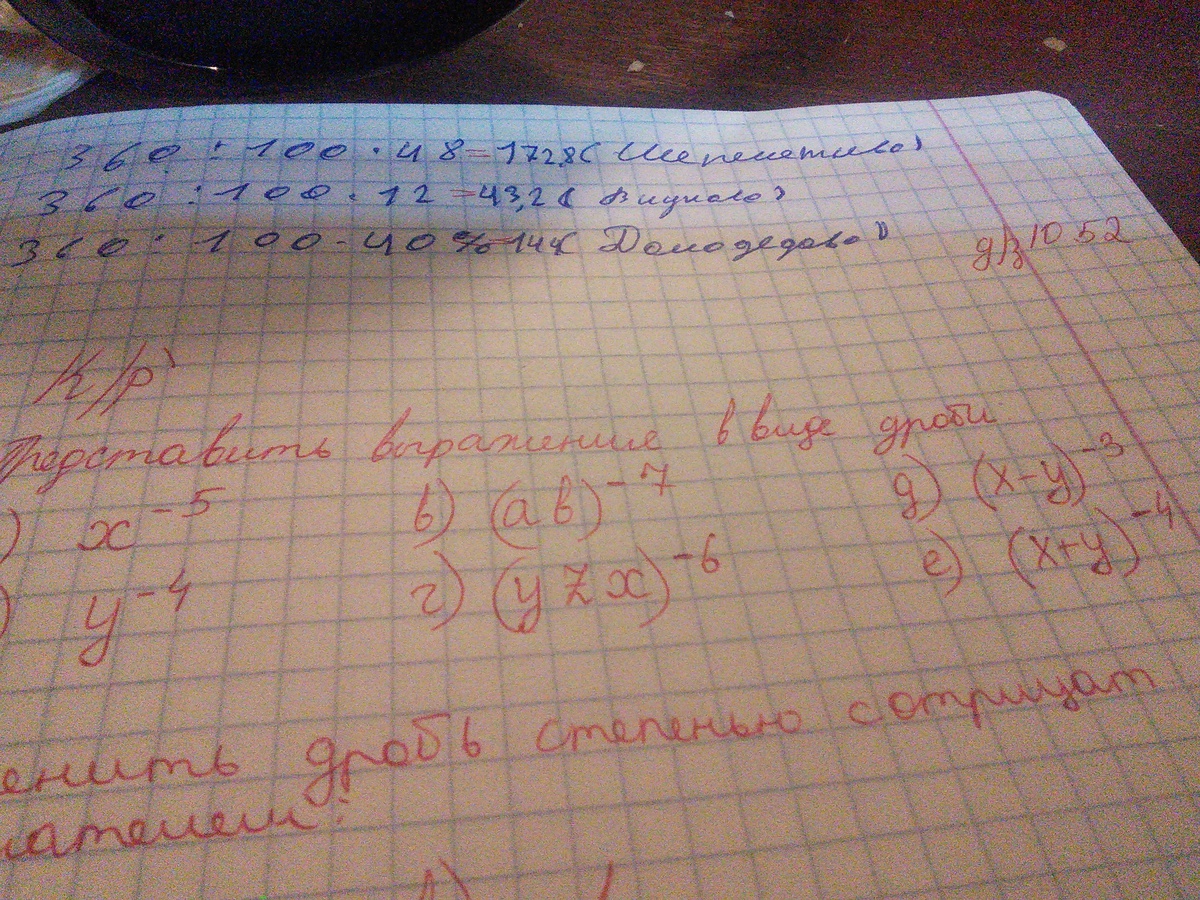 360 : 100 · 48 = 172,8 ( Шереметьево )
360 : 100 · 12 = 43,2 ( Внуково )
360 : 100 - 40 % = 144 ( Домодедово )
д/з 1052
К/р
Представить выражение в виде дроби
) x⁻⁵ в) (ab)⁻⁷ д) (x-y)⁻³
) y⁻⁴ г) (yzx)⁻⁶ е) (x+y)⁻⁴
енить дробь степенью с отрицат
ателем: